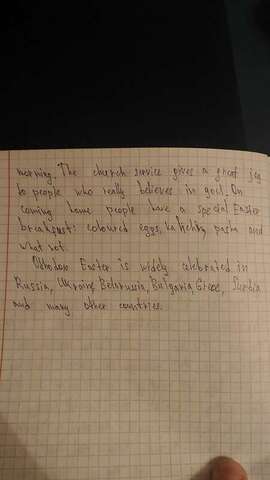 morning. The church service gives a great joy
to people who really believes in god. On
coming home people have a special Easter
breakfast: coloured eggs, kulichi, pasha and
what not.
Orthodox Easter is widely celebrated in
Russia, Ukraine, Belorussia, Bulgaria, Greece, Serbia
and many other countries.